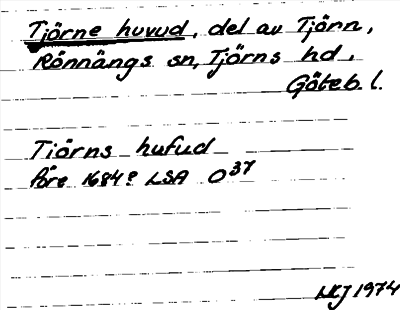 Tjörne huvud, del av Tjörn,
Rönnängs sn, Tjörns hd,
Göteb. l.
Tiörns hufud
före 1684? LSA O37
LKJ 1974